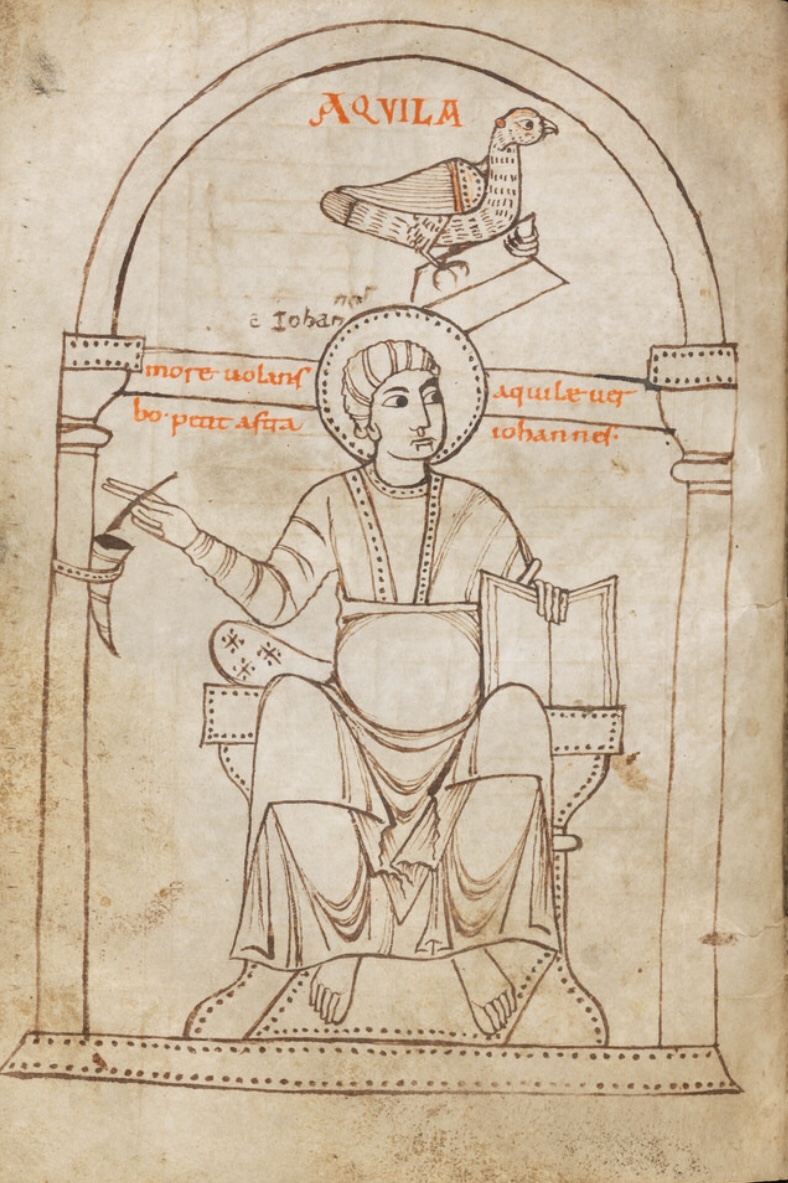 AQVILA
Iohan
more uolans aquilæ uer
bo petit astra iohannes·